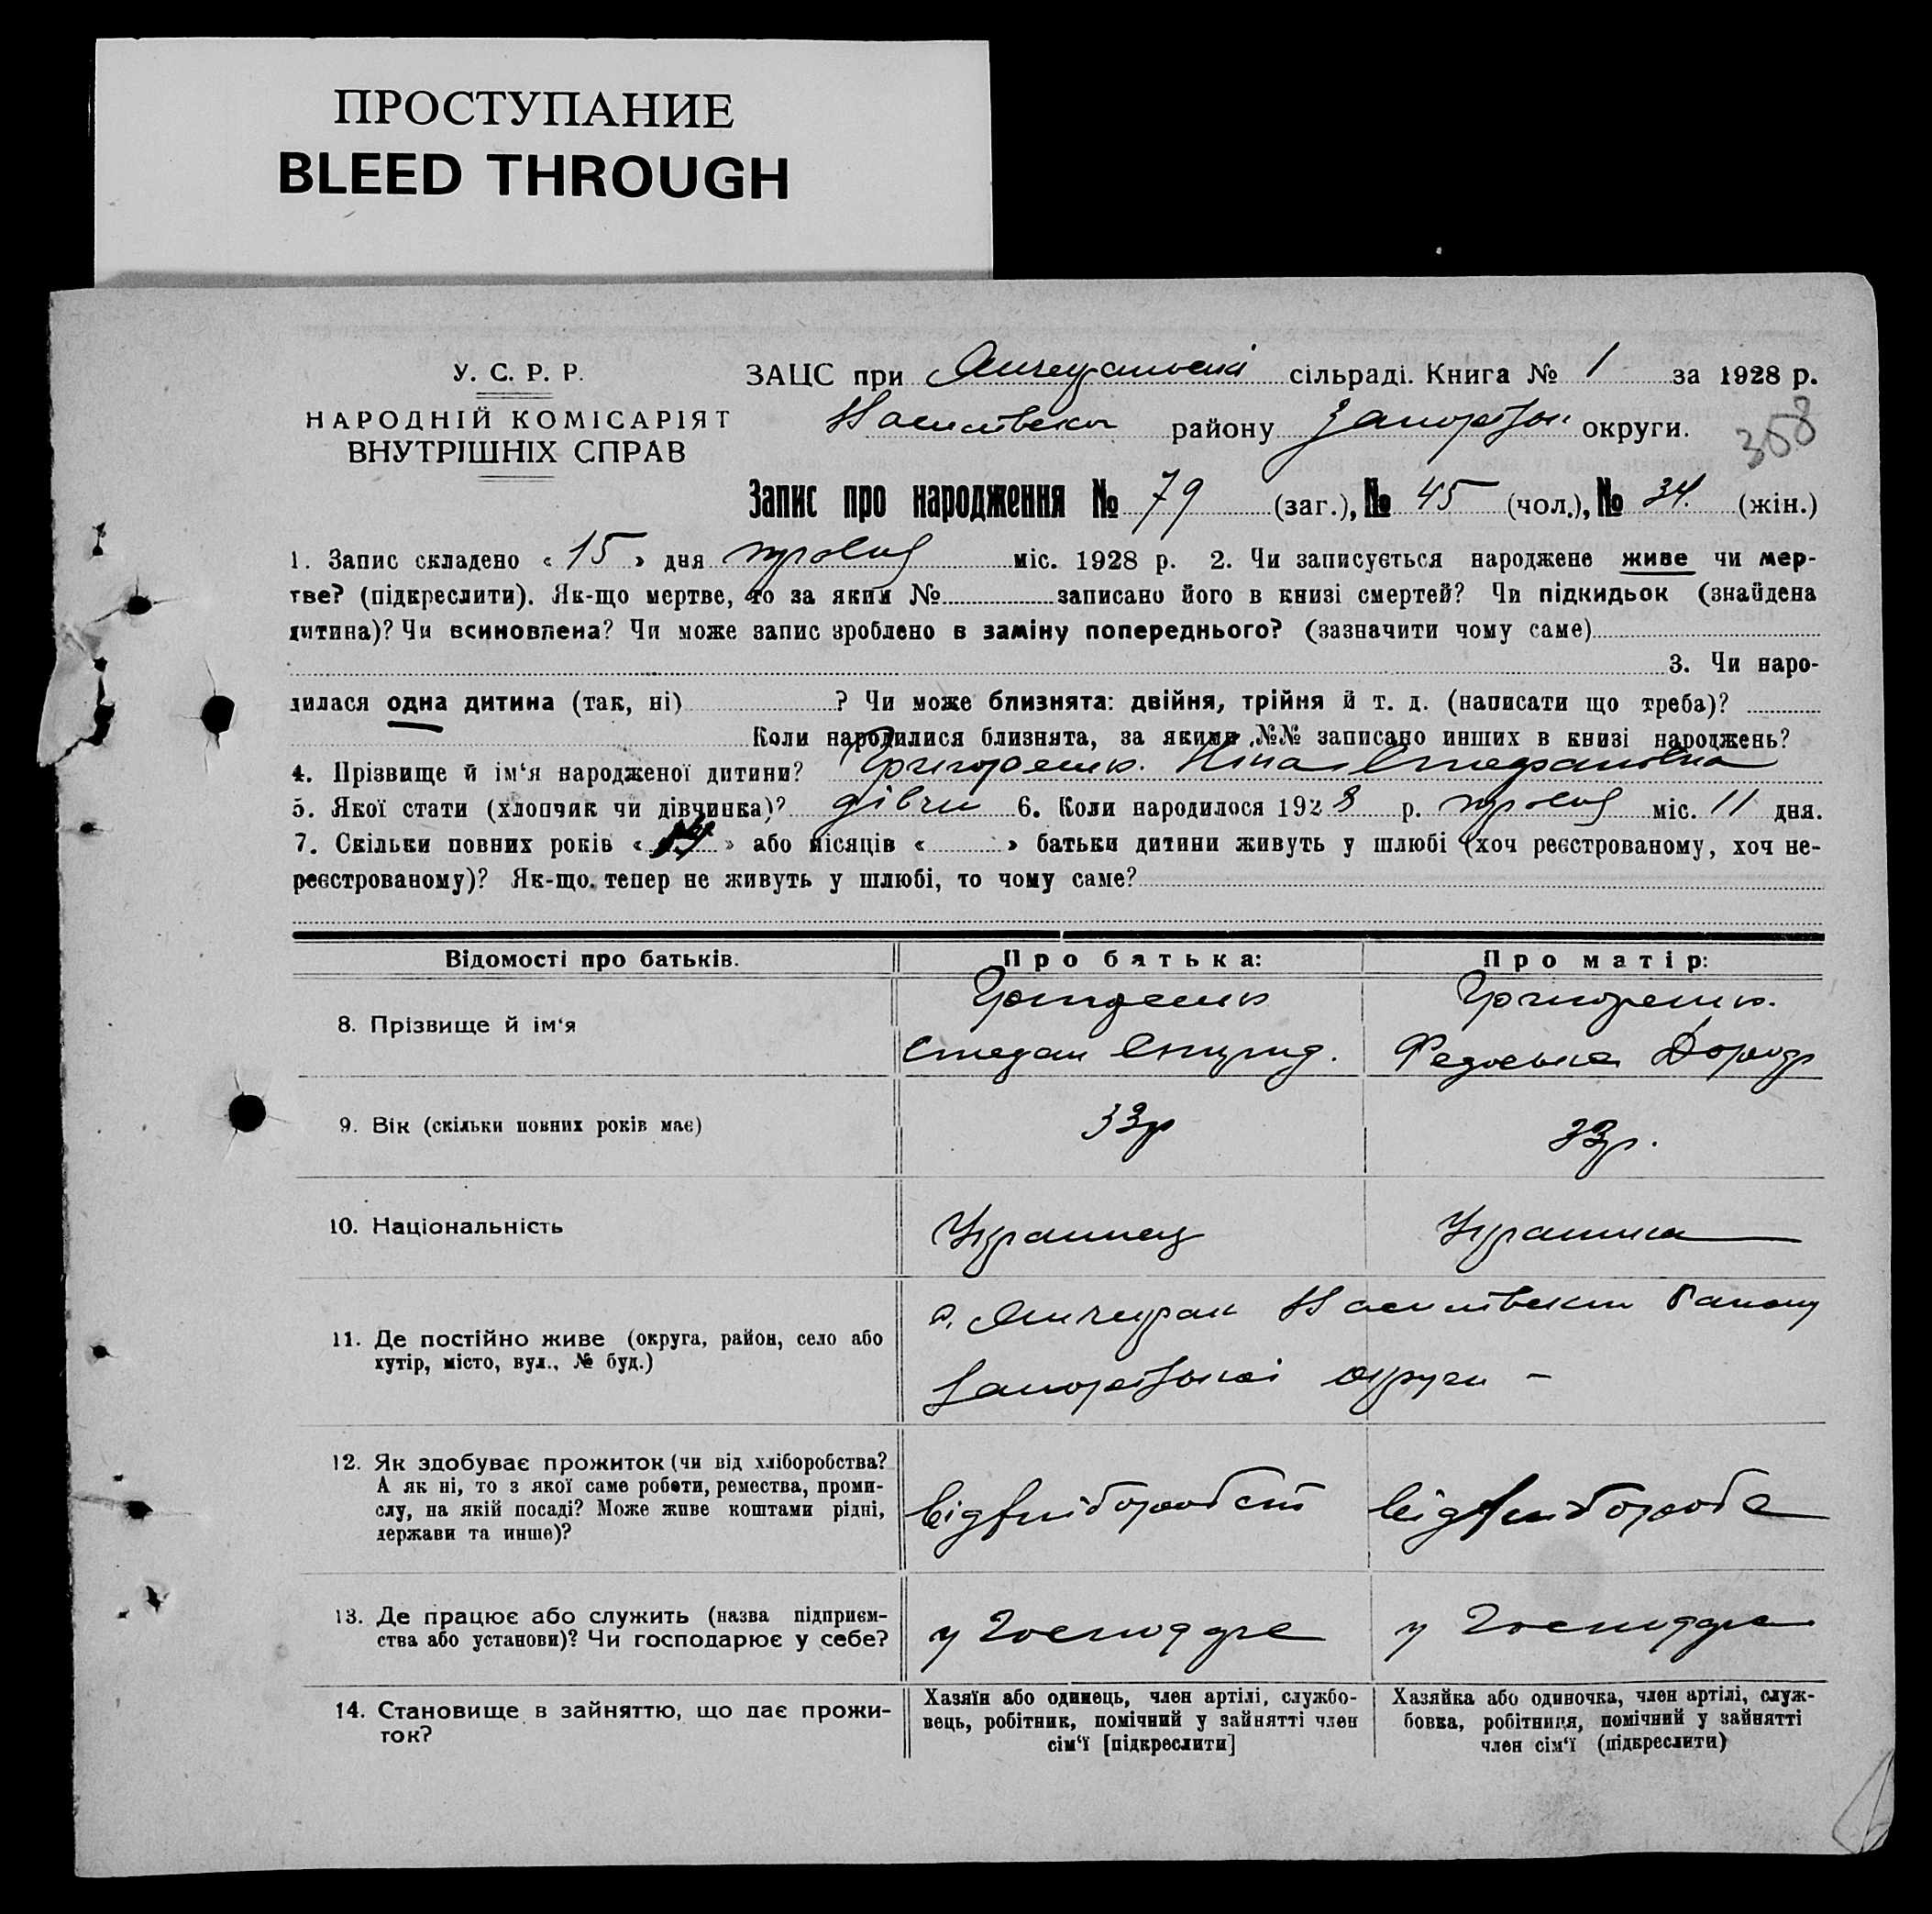 ПРОСТУПАНИЕ
BLEED THROUGH
У. С. Р. Р.
НАРОДНІЙ КОМІСАРІЯТ
ВНУТРІШНІХ СПРАВ
ЗАЦС при сільраді. Книга № 1 за 1928 р.
району округи.
358
Запис про народження № 79 (заг.), № 45 (чол.), № 34. (жін.)
1. Запис складено « 15 » дня міс. 1928 р. 2. Чи записується народжене живе чи мер-
тве? (підкреслити). Як-що мертве, то за яким № записано його в книзі смертей? Чи підкидьок (знайдена
дитина)? Чи всиновлена? Чи може запис зроблено в заміну попереднього? (зазначити чому саме)
3. Чи наро-
дилася одна дитина (так, ні) ? Чи може близнята: двійня, трійня й т. д. (написати що треба)?
Коли народилися близнята, за якими №№ записано инших в книзі народжень?
4. Прізвище й ім'я народженої дитини? Ніна Степановна
5. Якої стати (хлопчик чи дівчинка)? дівчи 6. Коли народилося 1928 р. міс. 11 дня.
7. Скільки повних років « » або місяців « » батьки дитини живуть у шлюбі (хоч реєстрованому, хоч не-
реєстрованому)? Як-що тепер не живуть у шлюбі, то чому саме?
Відомості про батьків. Про батька: Про матір:
8. Прізвище й ім'я
Степан
9. Вік (скільки повних років має) 33р 33р.
10. Національність Українец Українка
11. Де постійно живе (округа, район, село або
хутір, місто, вул., № буд.)
Запорізької округи –
12. Як здобуває прожиток (чи від хліборобства?
А як ні, то з якої саме роботи, ремества, проми-
слу, на якій посаді? Може живе коштами рідні,
держави та инше)?
від хліборобст від хлібороб
13. Де працює або служить (назва підприєм-
ства або установи)? Чи господарює у себе?
14. Становище в зайняттю, що дає прожи-
ток?
Хазяїн або одинець, член артілі, службо-
вець, робітник, помічний у зайнятті член
сім'ї [підкреслити]
Хазяйка або одиночка, член артілі, служ-
бовка, робітниця, помічний у зайнятті
член сім'ї (підкреслити)